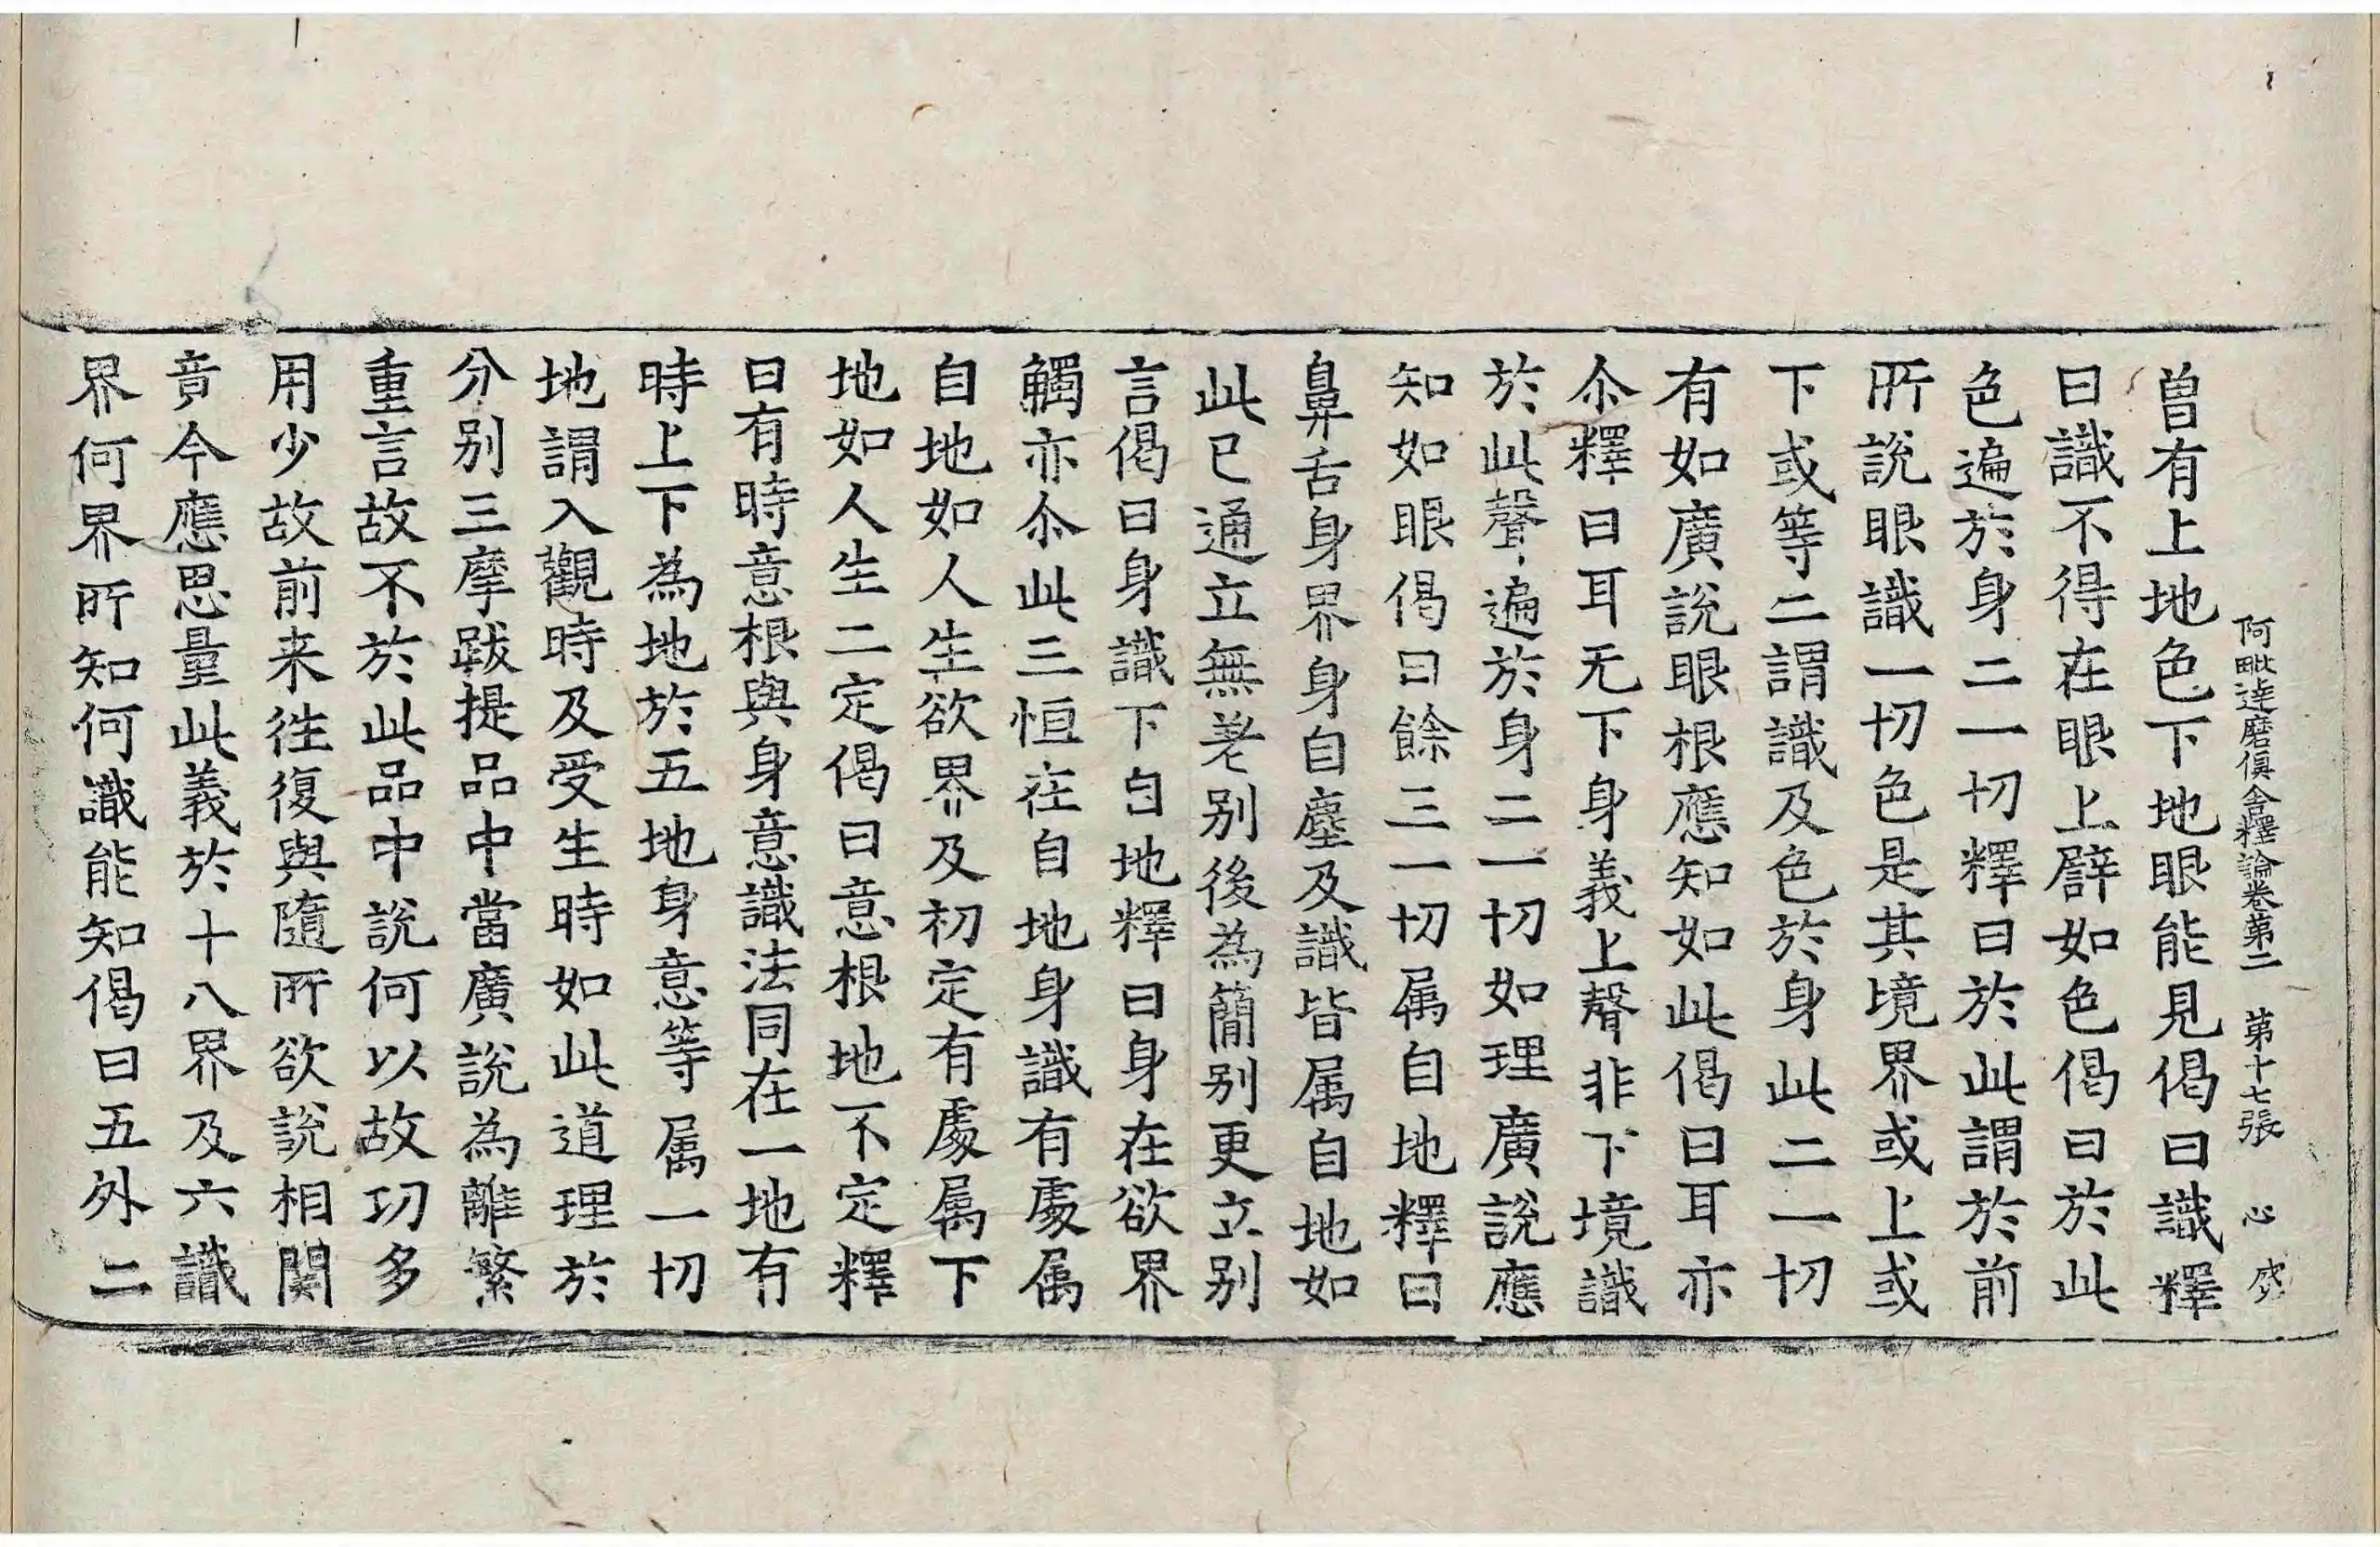 阿毗達磨俱舍釋論卷第二　第十七張　心
曽有上地色下地眼能見偈曰識釋
曰識不得在眼上譬如色偈曰於此
色遍於身二一切釋曰於此謂於前
所說眼識一切色是其境界或上或
下或等二謂識及色於身此二一切
有如廣說眼根應知如此偈曰耳亦
尒釋曰耳无下身義上聲非下境識
於此聲遍於身二一切如理廣說應
知如眼偈曰餘三一切属自地釋曰
鼻舌身界身自塵及識皆属自地如
此已通立無差别後為簡别更立别
言偈曰身識下自地釋曰身在欲界
觸亦尒此三恒在自地身識有處属
自地如人生欲界及初定有處属下
地如人生二定偈曰意根地不定釋
曰有時意根與身意識法同在一地有
時上下為地於五地身意等属一切
地謂入觀時及受生時如此道理於
分别三摩跋提品中當廣說為離繁
重言故不於此品中說何以故功多
用少故前来徃復與隨所欲說相関
竟今應思量此義於十八界及六識
界何界所知何識能知偈曰五外二